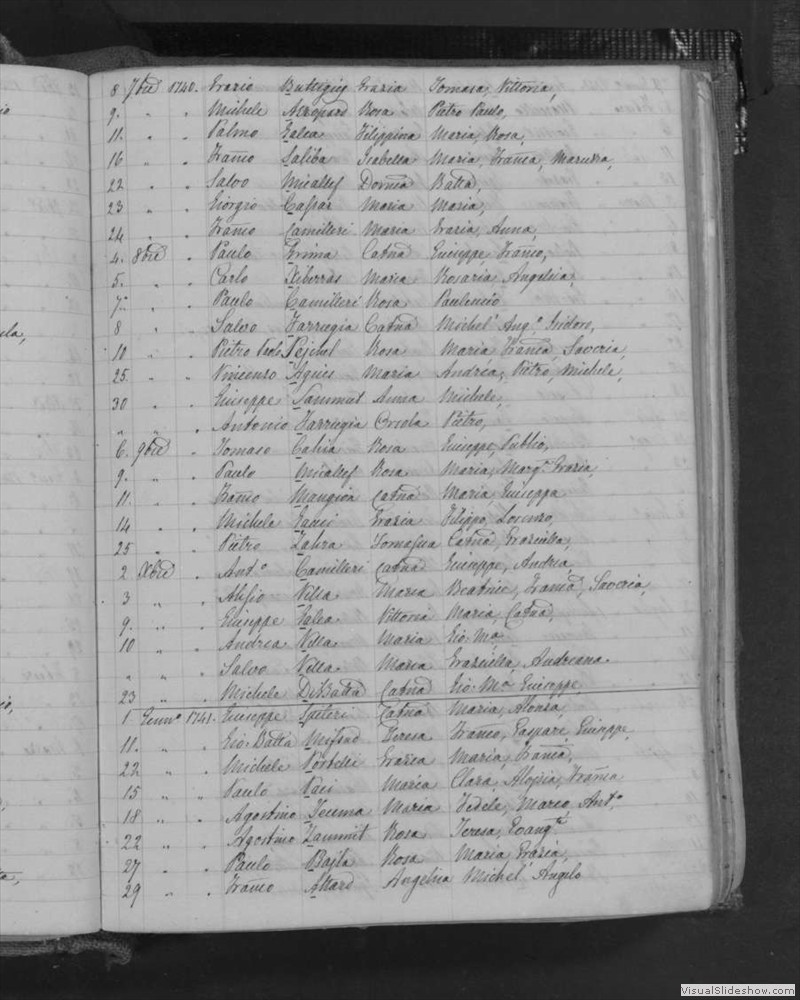 8 7bre 1740. Grazio Buttigieg Grazia Tomasa, Vittoria,
9. " . Michele Rosa Pietro Paulo,
11. . . Palmo Galea Filippina Maria, Rosa,
16 " . Franco Saliba Isabella Maria, Franca, Maruzza,
22 . . Salvo Micallef Batta,
23 . . Giorgio Caspar Maria Maria,
24 . . Franco Camilleri Maria Grazia, Anna,
4. 8bre . Paulo Grima Catna Giuseppe, Franco,
5. . . Carlo Xiberras Maria Rosaria, Angelica,
7. . . Paulo Camilleri Rosa
8 . . Salvo Farrugia Catna Michel' Ang.o Isidoro,
10 " . Pietro Paolo Psejchel Rosa Maria, Franca, Saveria,
25. . . Vincenzo Agius Maria Andrea, Pietro, Michele,
30 . . Giuseppe Sammut Anna Michele,
" " . Antonio Farrugia Orsola Pietro,
6. 9bre . Tomaso Calia Rosa Giuseppe, Publio,
9. " . Paulo Micallef Rosa Maria, Marg.a Grazia,
11. . . Franco Mangion Catna Maria Giuseppa
14 . . Michele Gauci Grazia Filippo, Lorenzo,
25 . . Pietro Zahra Tomasina Catna, Graziulla,
2 Xbre . Ant.o Camilleri Catna Giuseppe, Andrea
3 " . Alesio Vella Maria Beatrice, Franca, Saveria,
9. " . Giuseppe Galea Vittoria Maria, Catna,
10 " . Andrea Vella Maria Gio: Ma
" " . Salvo Vella Maria Graziulla, Andreana
23 " . Michele DeBatta Catna Gio: Ma Giuseppe
1 Genn.o 1741. Giuseppe Spiteri Catna Maria, Alonza,
11. " . Gio: Batta Mifsud Teresa Franco, Gaspare, Giuseppe,
22 " . Michele Portelli Grazia Maria, Franca,
15 " " Paulo Paci Maria Clara, Aloysia, Franca
18 " . Agostino Maria Fedele, Marco Ant.o
22 " . Agostino Zammit Rosa Teresa, Evang.ta
27 " . Paulo Bajla Rosa Maria, Grazia,
29 " . Franco Attard Angelica Michel' Angelo
VisualSlideshow.com